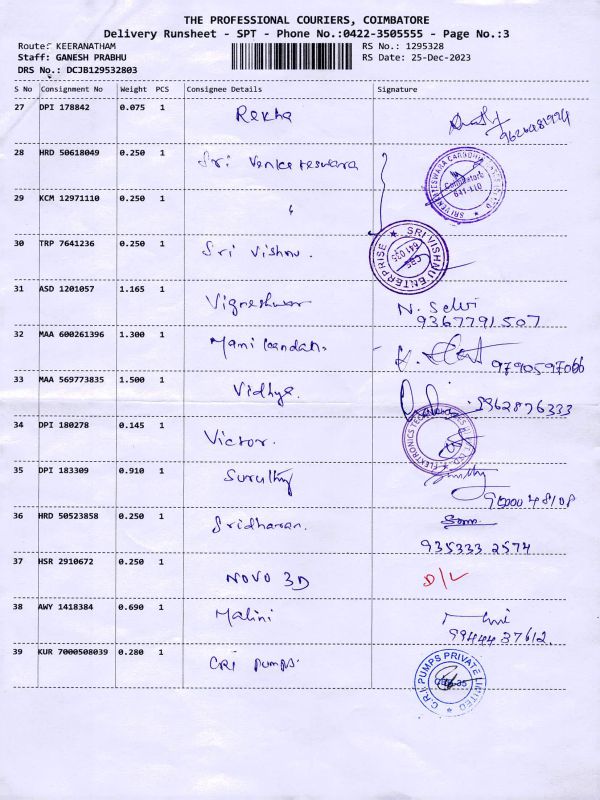 THE PROFESSIONAL COURIERS, COIMBATORE
Delivery Runsheet - SPT - Phone No.:0422-3505555 - Page No.:3
Route: KEERANATHAM RS No.: 1295328
Staff: GANESH PRABHU RS Date: 25-Dec-2023
DRS No.: DCJB129532803
S No Consignment No Weight PCS Consignee Details Signature
27 DPI 178842 0.075 1 Rekha
28 HRD 50618049 0.250 1 Sri Venkateswara
29 KCM 12971110 0.250 1 "
30 TRP 7641236 0.250 1 Sri Vishnu. SRI VISHNU ENTERPRISE CBE 641 035
31 ASD 1201057 1.165 1 Vigneshwar N. Selvi
9367791507
32 MAA 600261396 1.300 1 Manikandan. 9790597066
33 MAA 569773835 1.500 1 Vidhya. 9362876333
34 DPI 180278 0.145 1 Victor.
35 DPI 183309 0.910 1 Suruthy
36 HRD 50523858 0.250 1 Sridharan.
935333 2574
37 HSR 2910672 0.250 1 NOVO 3D D/L
38 AWY 1418384 0.690 1 Malini
9944437612.
39 KUR 7000508039 0.280 1 CRI Pumps. C.R.I. PUMPS PRIVATE LIMITED